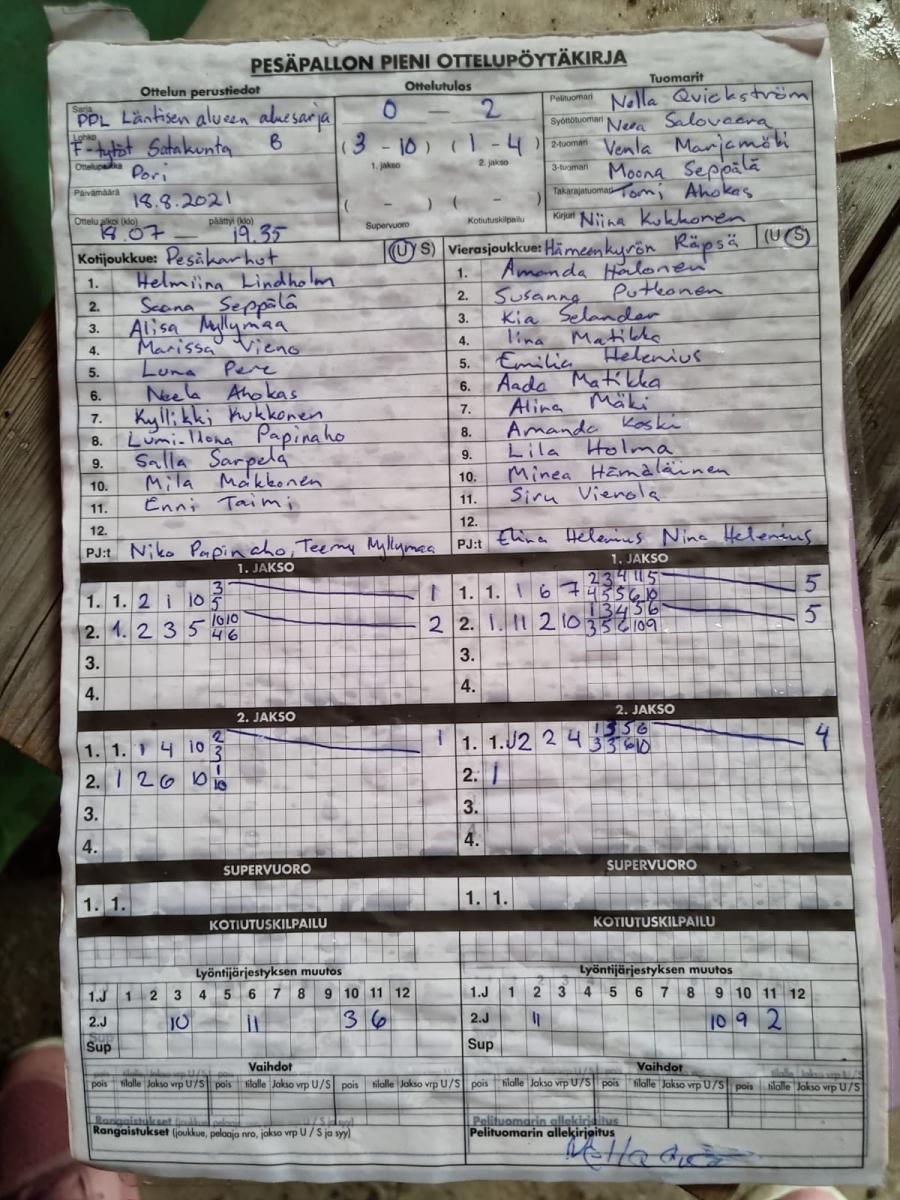 PESÄPALLON PIENI OTTELUPÖYTÄKIRJA
Ottelun perustiedot
Sarja PPL Läntisen alueen aluesarja
Lohko F-tytöt Satakunta B
Ottelupaikka Pori
Päivämäärä 18.8.2021
Ottelu alkoi (klo) päättyi (klo)
18.07 — 19.35
Ottelutulos
0 — 2
(3 - 10) (1 - 4)
1. jakso 2. jakso
( - ) ( - )
Supervuoro Kotiutuskilpailu
Tuomarit
Pelituomari Nella Quickström
Syöttötuomari Neea Salovaara
2-tuomari Venla Marjamäki
3-tuomari Moona Seppälä
Takarajatuomari Tomi Ahokas
Kirjuri Niina Kukkonen
Kotijoukkue: Pesäkarhut (U S)
1. Helmiina Lindholm
2. Saana Seppälä
3. Alisa Myllymaa
4. Marissa Vieno
5. Luna Pere
6. Neela Ahokas
7. Kyllikki Kukkonen
8. Lumi-Ilona Papinaho
9. Salla Sarpela
10. Mila Makkonen
11. Enni Taimi
12.
PJ:t Niko Papinaho, Teemu Myllymaa
Vierasjoukkue: Hämeenkyrön Räpsä (U S)
1. Amanda Halonen
2. Susanna Putkonen
3. Kia Selander
4. Iina Matikka
5. Emilia Helenius
6. Aada Matikka
7. Alina Mäki
8. Amanda Koski
9. Lila Holma
10. Minea Hämäläinen
11. Siru Vienola
12.
PJ:t Elina Helenius Nina Helenius
1. JAKSO
1. 1. 2 1 10 3 1
5
2. 1. 2 3 5 10 10 2
4 6
3.
4.
1. JAKSO
1. 1. 1 6 7 2 3 4 11 5 5
4 5 5 6 10
2. 1. 11 2 10 1 3 4 5 6 5
3 5 6 10 9
3.
4.
2. JAKSO
1. 1. 1 4 10 2 1
3
2. 1 2 6 10 1
10
3.
4.
2. JAKSO
1. 1. 2 2 4 1 3 5 6 4
3 3 6 10
2. 1
3.
4.
SUPERVUORO
1. 1.
SUPERVUORO
1. 1.
KOTIUTUSKILPAILU
KOTIUTUSKILPAILU
Lyöntijärjestyksen muutos
1.J 1 2 3 4 5 6 7 8 9 10 11 12
2.J 10 11 3 6
Sup
Lyöntijärjestyksen muutos
1.J 1 2 3 4 5 6 7 8 9 10 11 12
2.J 11 10 9 2
Sup
Vaihdot
pois tilalle Jakso vrp U/S pois tilalle Jakso vrp U/S pois tilalle Jakso vrp U/S
Vaihdot
pois tilalle Jakso vrp U/S pois tilalle Jakso vrp U/S pois tilalle Jakso vrp U/S
Rangaistukset (joukkue, pelaaja nro, jakso vrp U / S ja syy)
Pelituomarin allekirjoitus
Nella